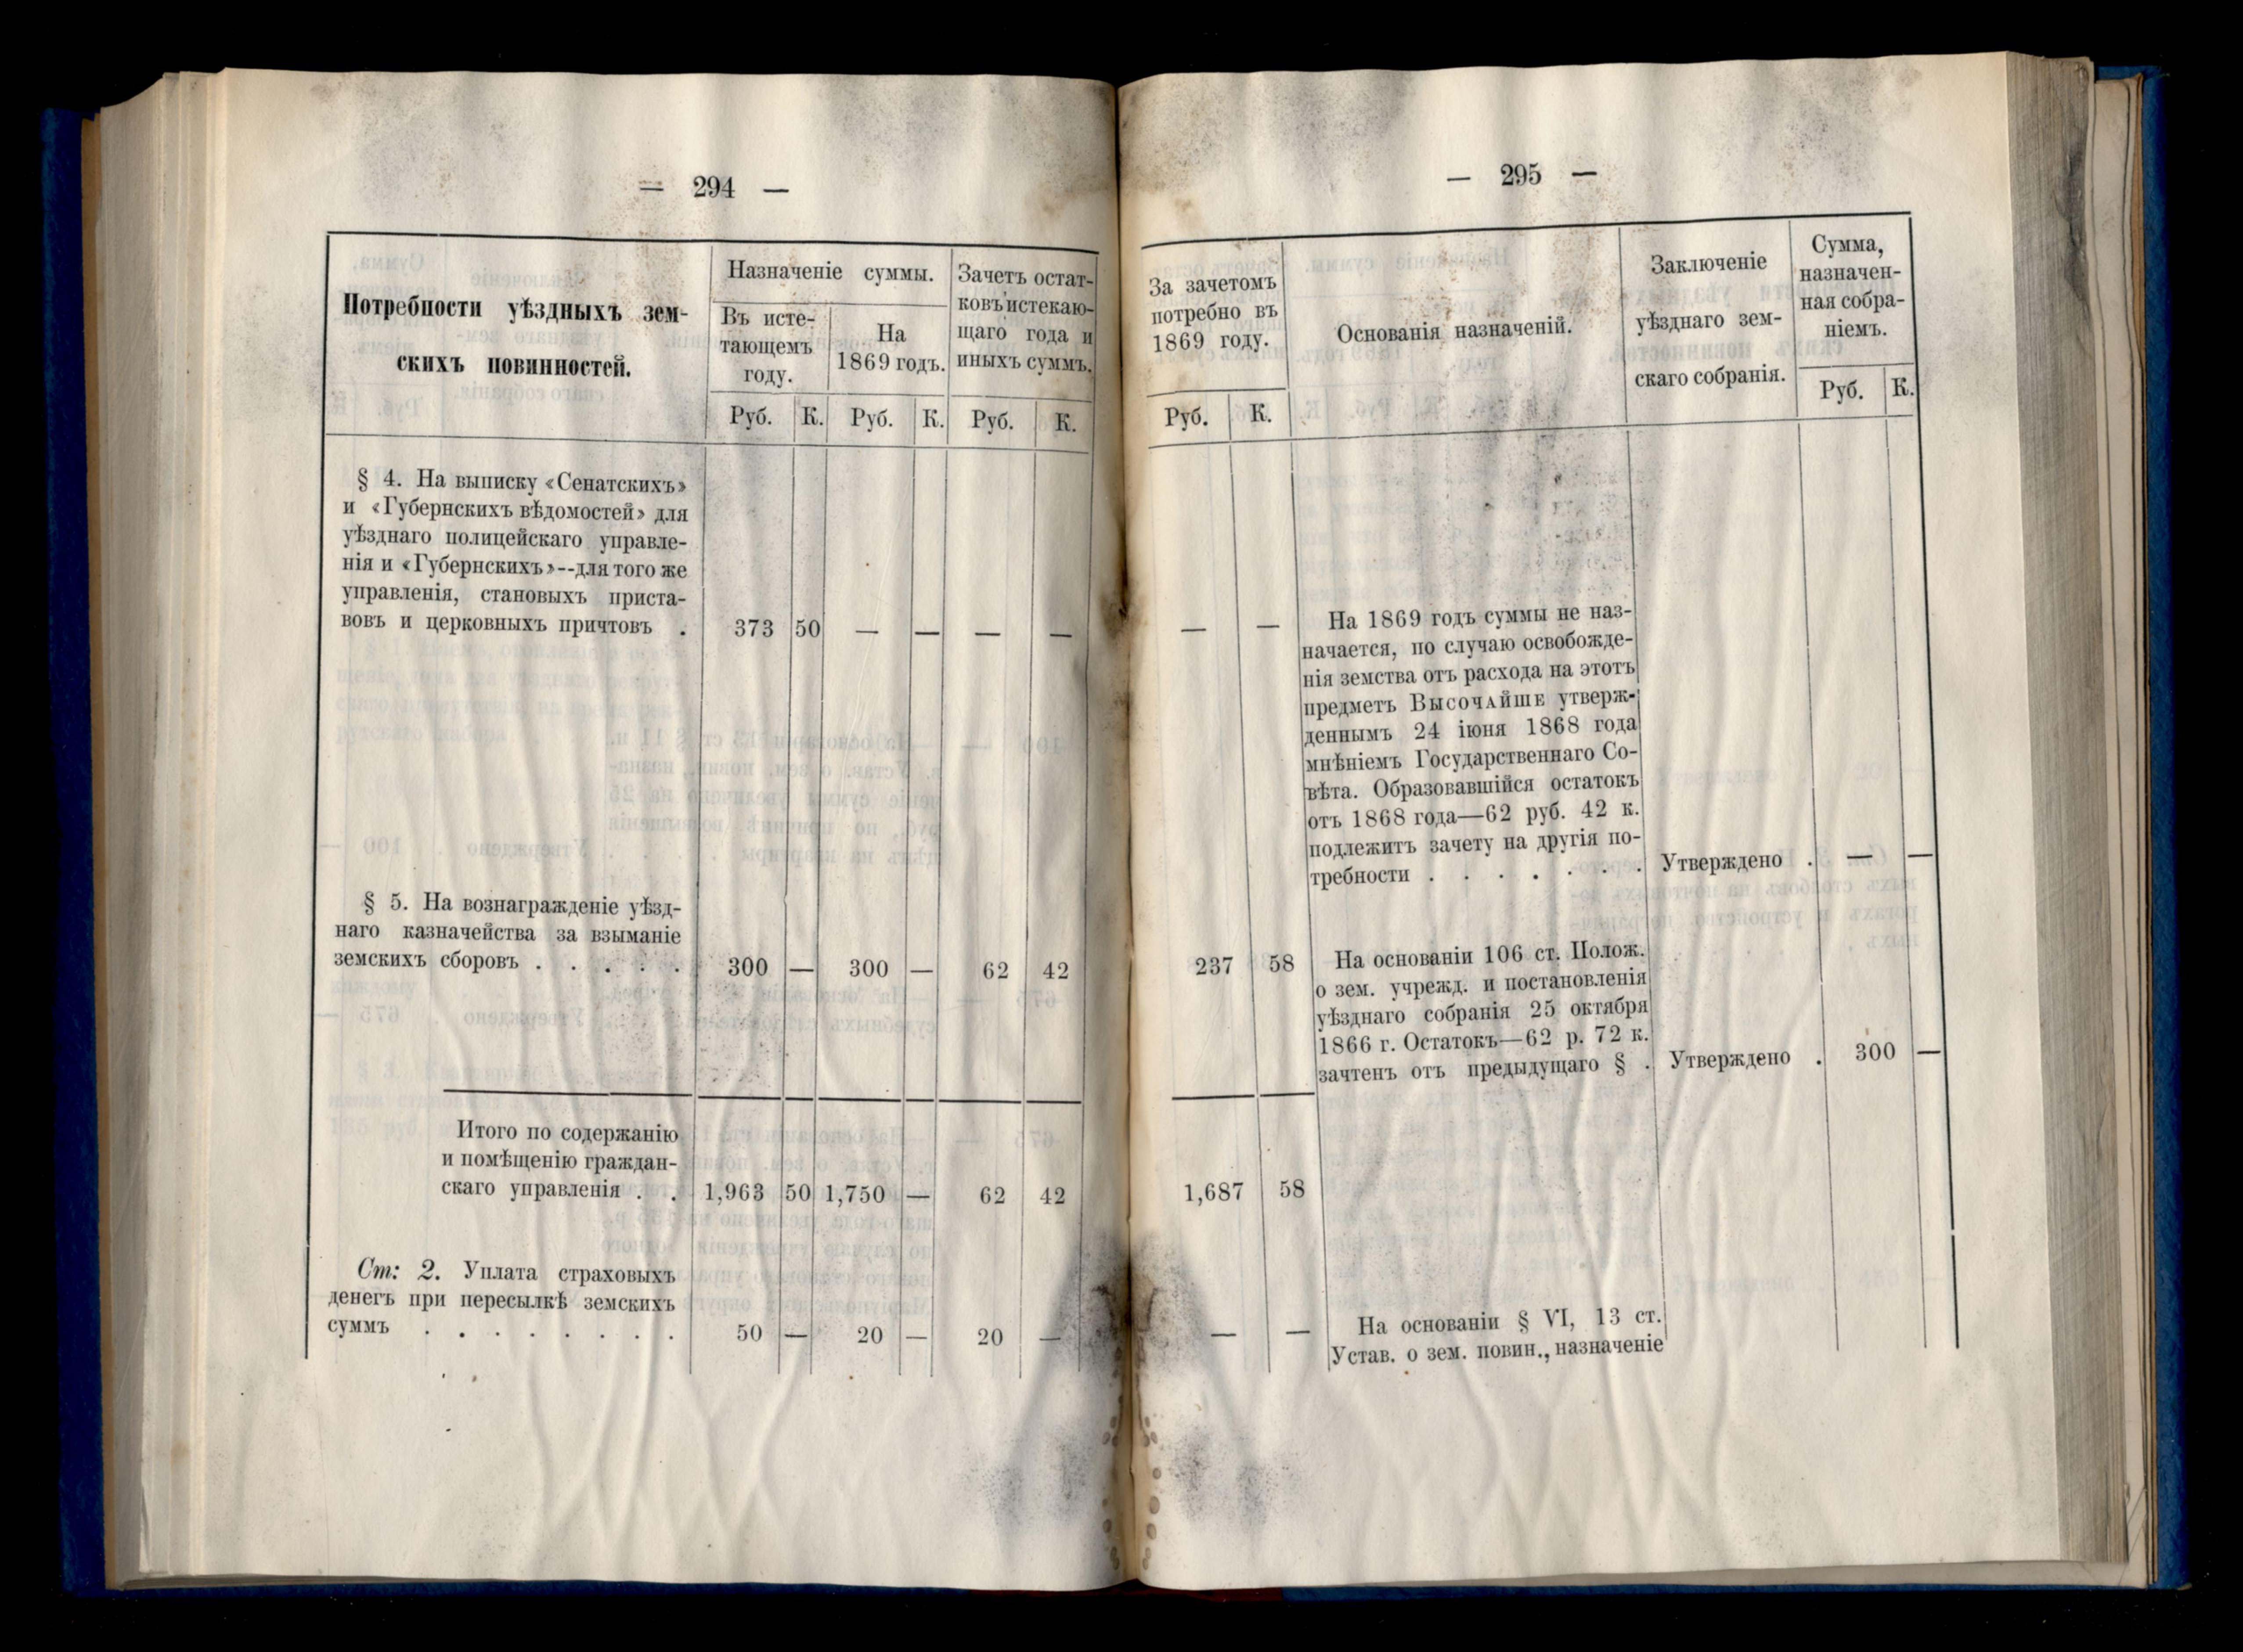 — 294 —
Потребности уѣздныхъ зем-
скихъ повинностей.
Назначеніе суммы.
Въ исте-
тающемъ
году.
На
1869 годъ.
Зачетъ остат-
ковъ истекаю-
щаго года и
иныхъ суммъ.
Руб. К. Руб. К. Руб. К.
§ 4. На выписку «Сенатскихъ»
и «Губернскихъ вѣдомостей» для
уѣзднаго полицейскаго управле-
нія и «Губернскихъ»--для того же
управленія, становыхъ приста-
вовъ и церковныхъ причтовъ . 373 50 — — — —
§ 5. На вознагражденіе уѣзд-
наго казначейства за взыманіе
земскихъ сборовъ . . . . . 300 — 300 — 62 42
Итого по содержанію
и помѣщенію граждан-
скаго управленія . . 1,963 50 1,750 — 62 42
Ст: 2. Уплата страховыхъ
денегъ при пересылкѣ земскихъ
суммъ . . . . . . . . 50 — 20 — 20 —
— 295 —
За зачетомъ
потребно въ
1869 году.
Руб. К.
Основанія назначеній.
Заключеніе
уѣзднаго зем-
скаго собранія.
Сумма,
назначен-
ная собра-
ніемъ.
Руб. К.
— — На 1869 годъ суммы не наз-
начается, по случаю освобожде-
нія земства отъ расхода на этотъ
предметъ Высочайше утверж-
деннымъ 24 іюня 1868 года
мнѣніемъ Государственнаго Со-
вѣта. Образовавшійся остатокъ
отъ 1868 года—62 руб. 42 к.
подлежитъ зачету на другія по-
требности . . . . . . . Утверждено . — —
237 58 На основаніи 106 ст. Полож.
о зем. учрежд. и постановленія
уѣзднаго собранія 25 октября
1866 г. Остатокъ—62 р. 72 к.
зачтенъ отъ предыдущаго § . Утверждено . 300 —
1,687 58
— — На основаніи § VI, 13 ст.
Устав. о зем. повин., назначеніе